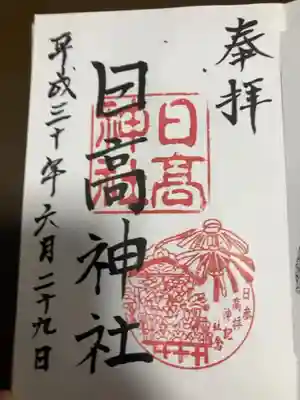 奉拝
日高神社
日髙神社
平成三十年六月二十九日
日高神社
参拝記念